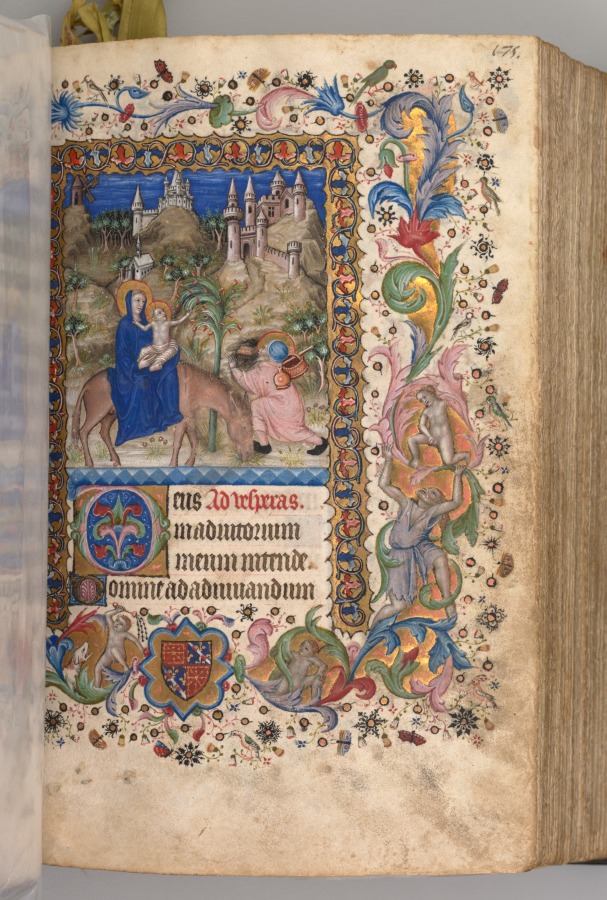 175.
Deus Ad vesperas.
in adiutorium
meum intende.
Domine ad adiuuandum